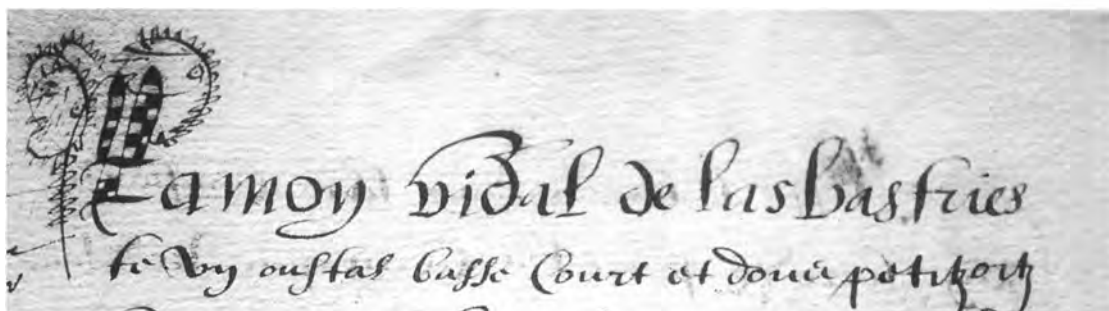 Ramon vidal de las bastries
te vn oustal basse court et doues petitz ortz